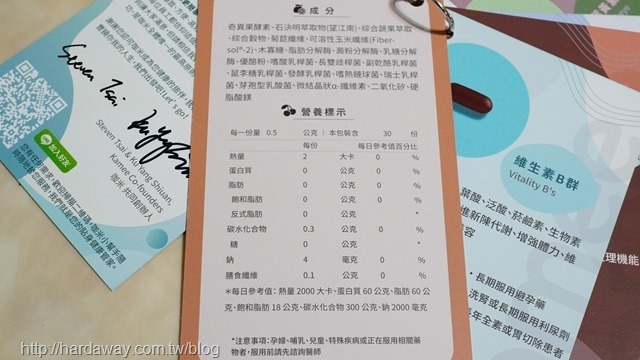 成分
奇異果酵素、石決明萃取物(望江南)、綜合蔬果萃取
、綜合穀物、菊苣纖維、可溶性玉米纖維(Fiber-
sol®-2)、木寡糖、脂肪分解酶、澱粉分解酶、乳糖分解
酶、優酪粉、嗜酸乳桿菌、長雙歧桿菌、副乾酪乳桿
菌、鼠李糖乳桿菌、發酵乳桿菌、嗜熱鏈球菌、瑞士乳桿
菌、芽孢型乳酸菌、微結晶狀α-纖維素、二氧化矽、硬
脂酸鎂
營養標示
每一份量 0.5 公克 | 本包裝含 30 份
每份 每日參考值百分比
熱量 2 大卡 0 %
蛋白質 0 公克 0 %
脂肪 0 公克 0 %
飽和脂肪 0 公克 0 %
反式脂肪 0 公克 *
碳水化合物 0.3 公克 0 %
糖 0 公克 *
鈉 4 毫克 0 %
膳食纖維 0.1 公克 0 %
*每日參考值: 熱量 2000 大卡、蛋白質 60 公克、脂肪 60 公
克、飽和脂肪 18 公克、碳水化合物 300 公克、鈉 2000 毫克
*注意事項:孕婦、哺乳、兒童、特殊疾病或正在服用相關藥
物者,服用前請先諮詢醫師
Steven Tsai
Steven Tsai & Ku Yang Shiuan,
Kamee Co-founders
咖米 共同創辦人
加入好友
維生素B群
Vitality B's
葉酸、泛酸、菸鹼素、生物素
進新陳代謝、增強體力、維
・長期服用避孕藥
洗腎或長期服用利尿劑
年全素或胃切除患者
http://hardaway.com.tw/blog